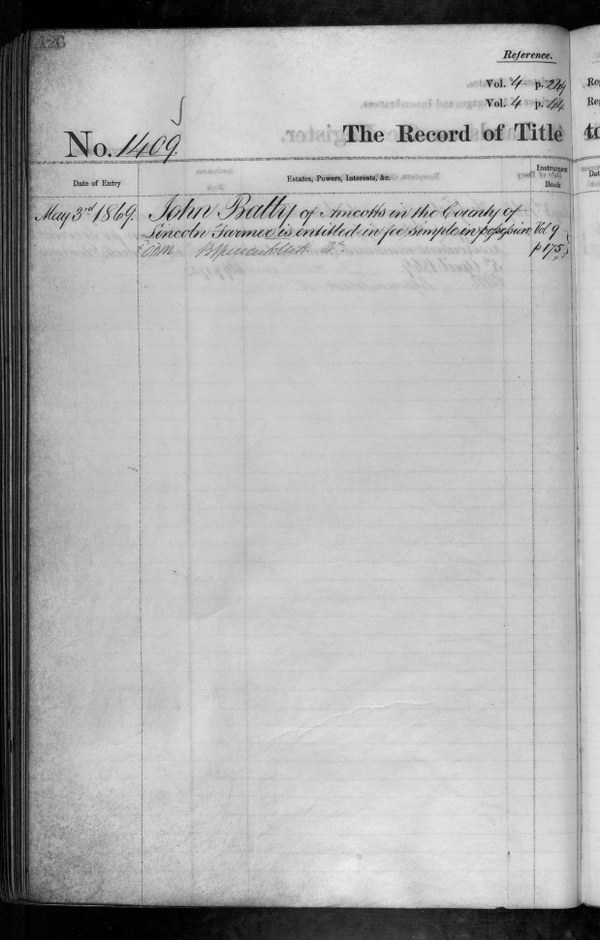 Reference.
Vol. 4 p. 249
Vol. 4 p. 44
No. 1409.
The Record of Title to
Date of Entry
Estates, Powers, Interests, &c.
Instrument Book
May 3rd 1869.
John Batty of Amcotts in the County of
Lincoln Farmer is intitled in fee simple in possession
Vol 9
p 175